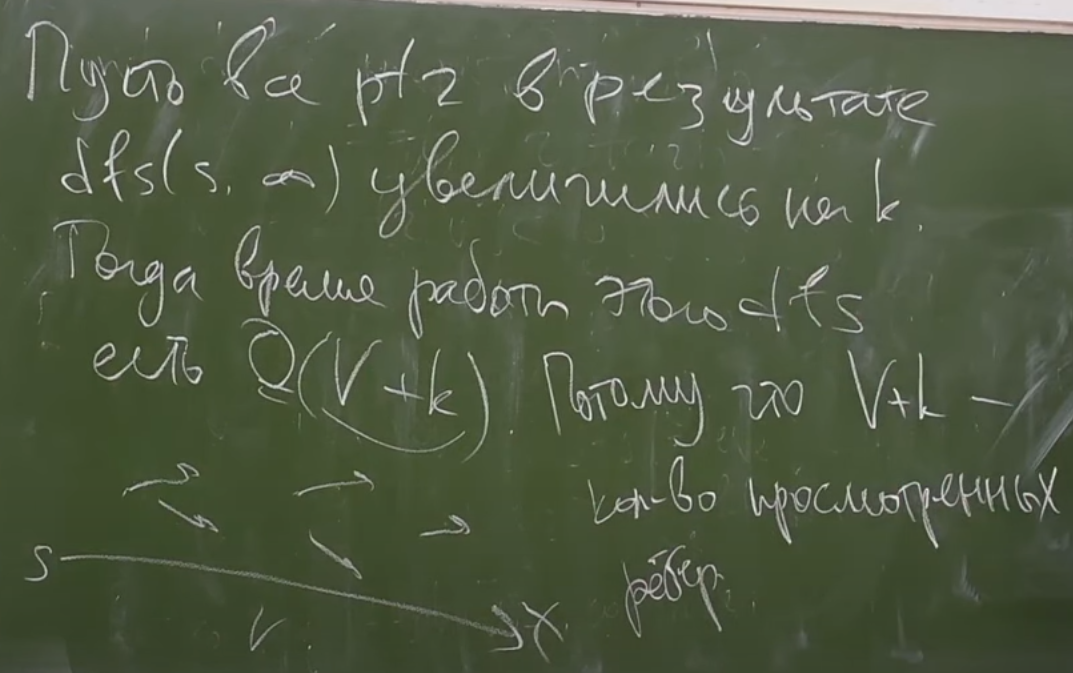 Пусть все ptr в результате
dfs(s, ∞) увеличились на k.
Тогда время работы этого dfs
есть O(V+k). Потому что V+k –
кол-во просмотренных
рёбер.
S
V